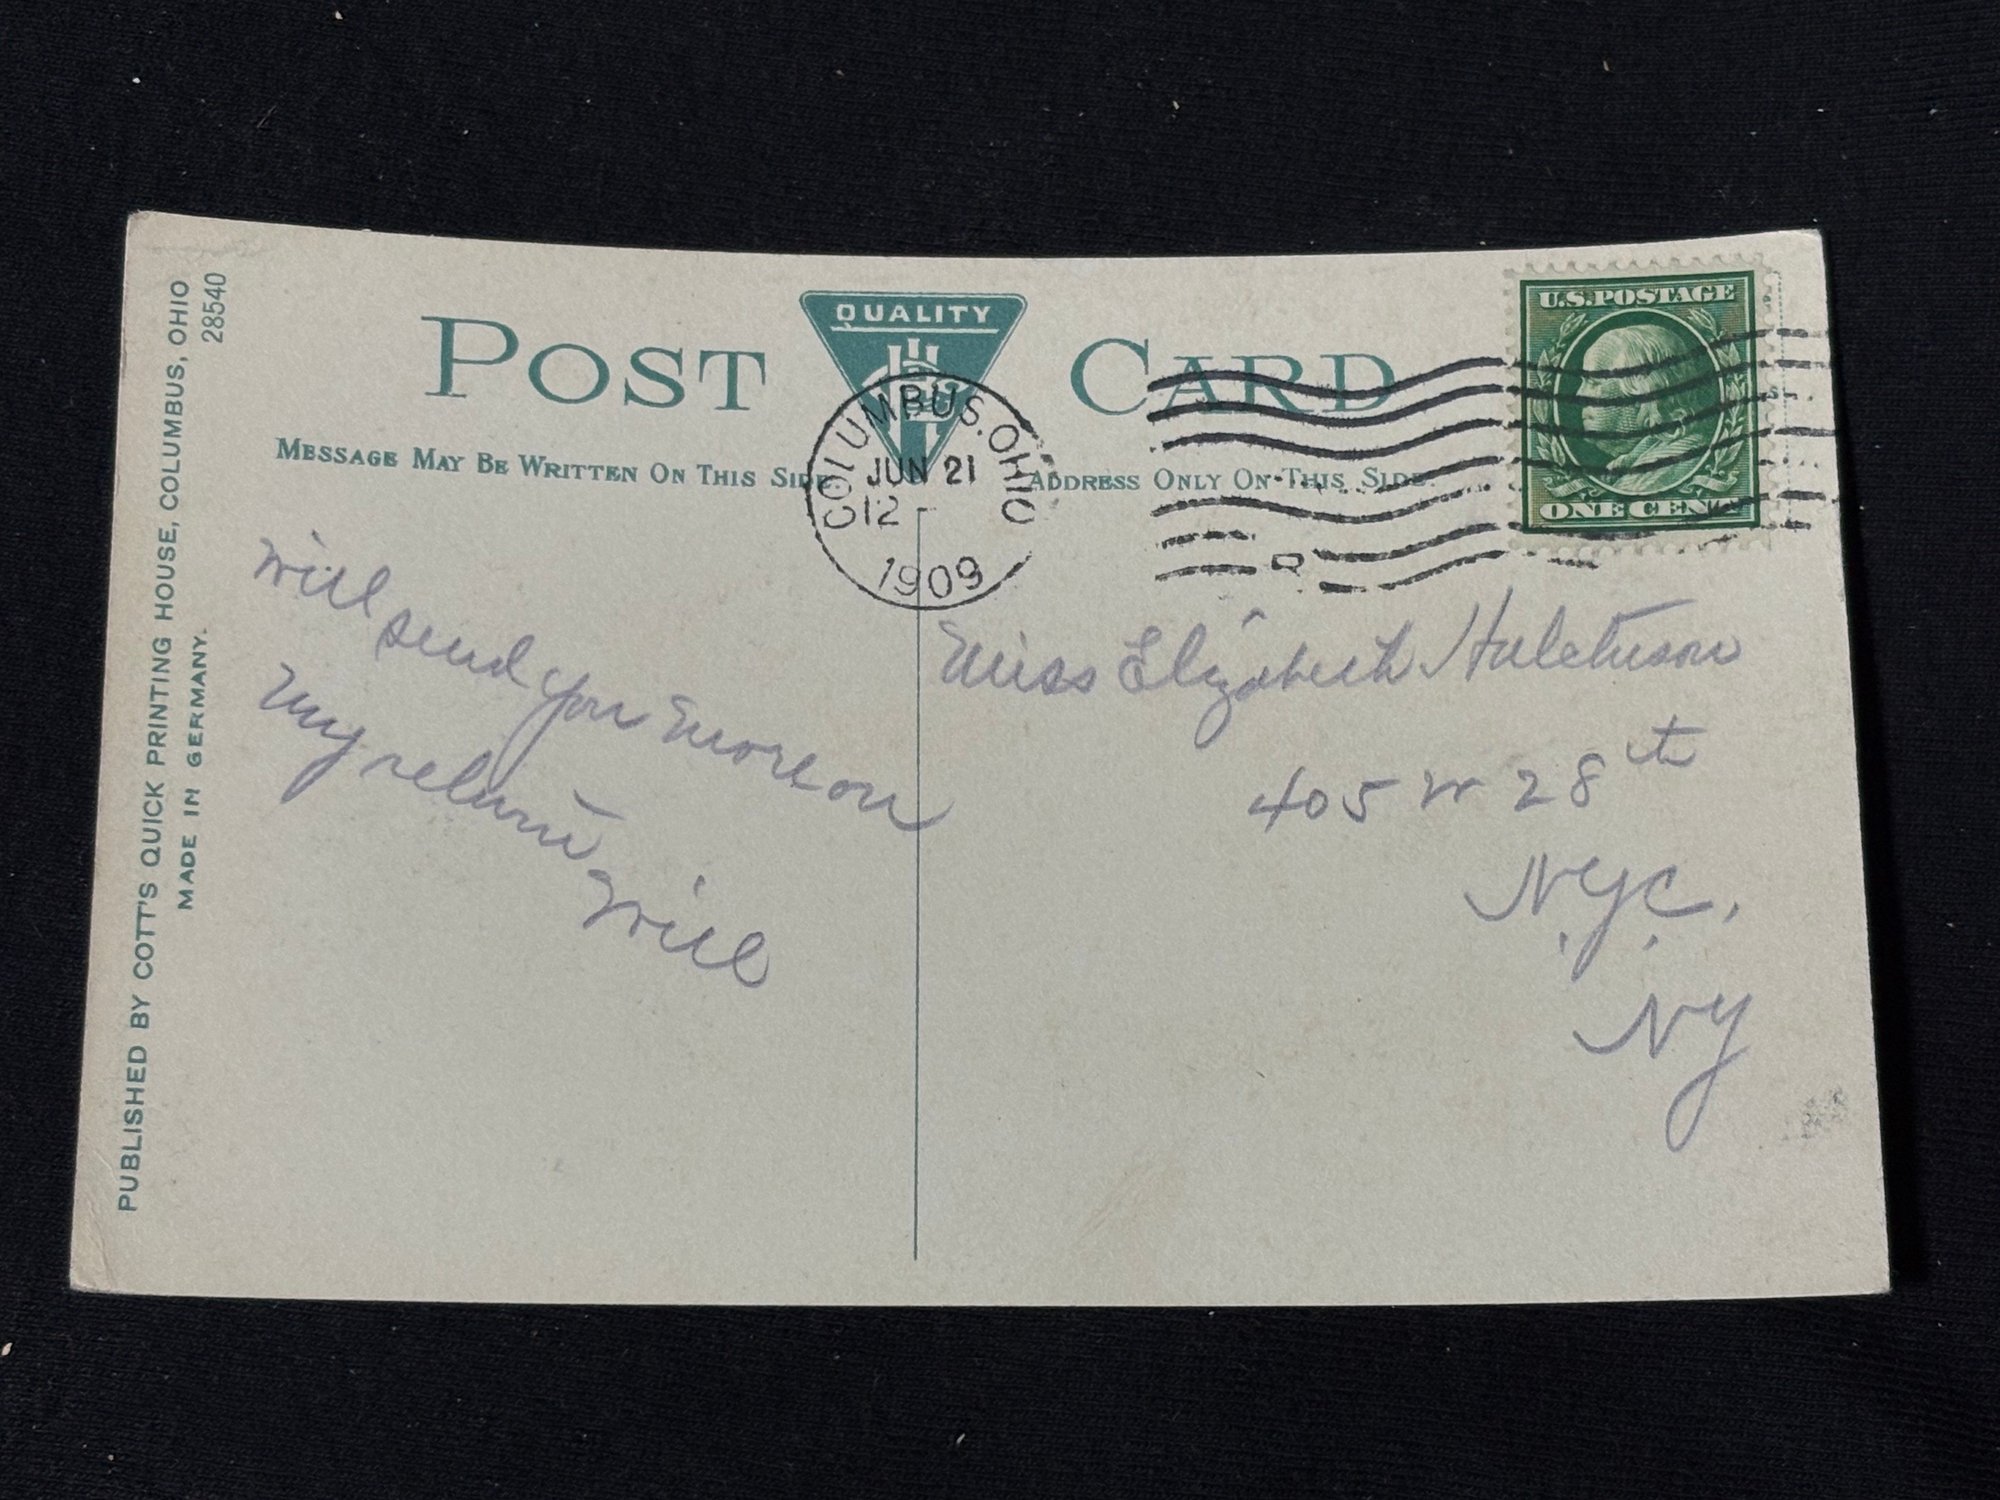 PUBLISHED BY COTT'S QUICK PRINTING HOUSE, COLUMBUS, OHIO
28540
MADE IN GERMANY.
POST CARD
QUALITY
MESSAGE MAY BE WRITTEN ON THIS SIDE.
ADDRESS ONLY ON THIS SIDE.
COLUMBUS, OHIO
JUN 21
12 -
1909
U.S. POSTAGE
ONE CENT
Will send you more on
my return
Will
Miss Elizabeth Hutchison
405 W 28th
N.Y.C.
NY